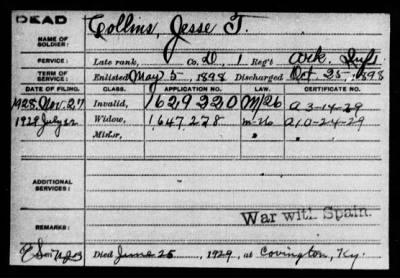 DEAD
Collins, Jesse T.
NAME OF
SOLDIER:
SERVICE: Late rank, Co. D, 1 Reg't Ark. Inf.
TERM OF
SERVICE: Enlisted May 5, 1898 Discharged Oct. 25, 1898
DATE OF FILING. CLASS. APPLICATION NO. LAW. CERTIFICATE NO.
1928 Nov. 27 Invalid, 1629220 M/26 a 3-14-29
1929 July Widow, 1647278 m-26 a 10-24-29
Minor,
ADDITIONAL
SERVICES:
War with Spain.
REMARKS:
Died June 25, 1929, at Covington, Ky.